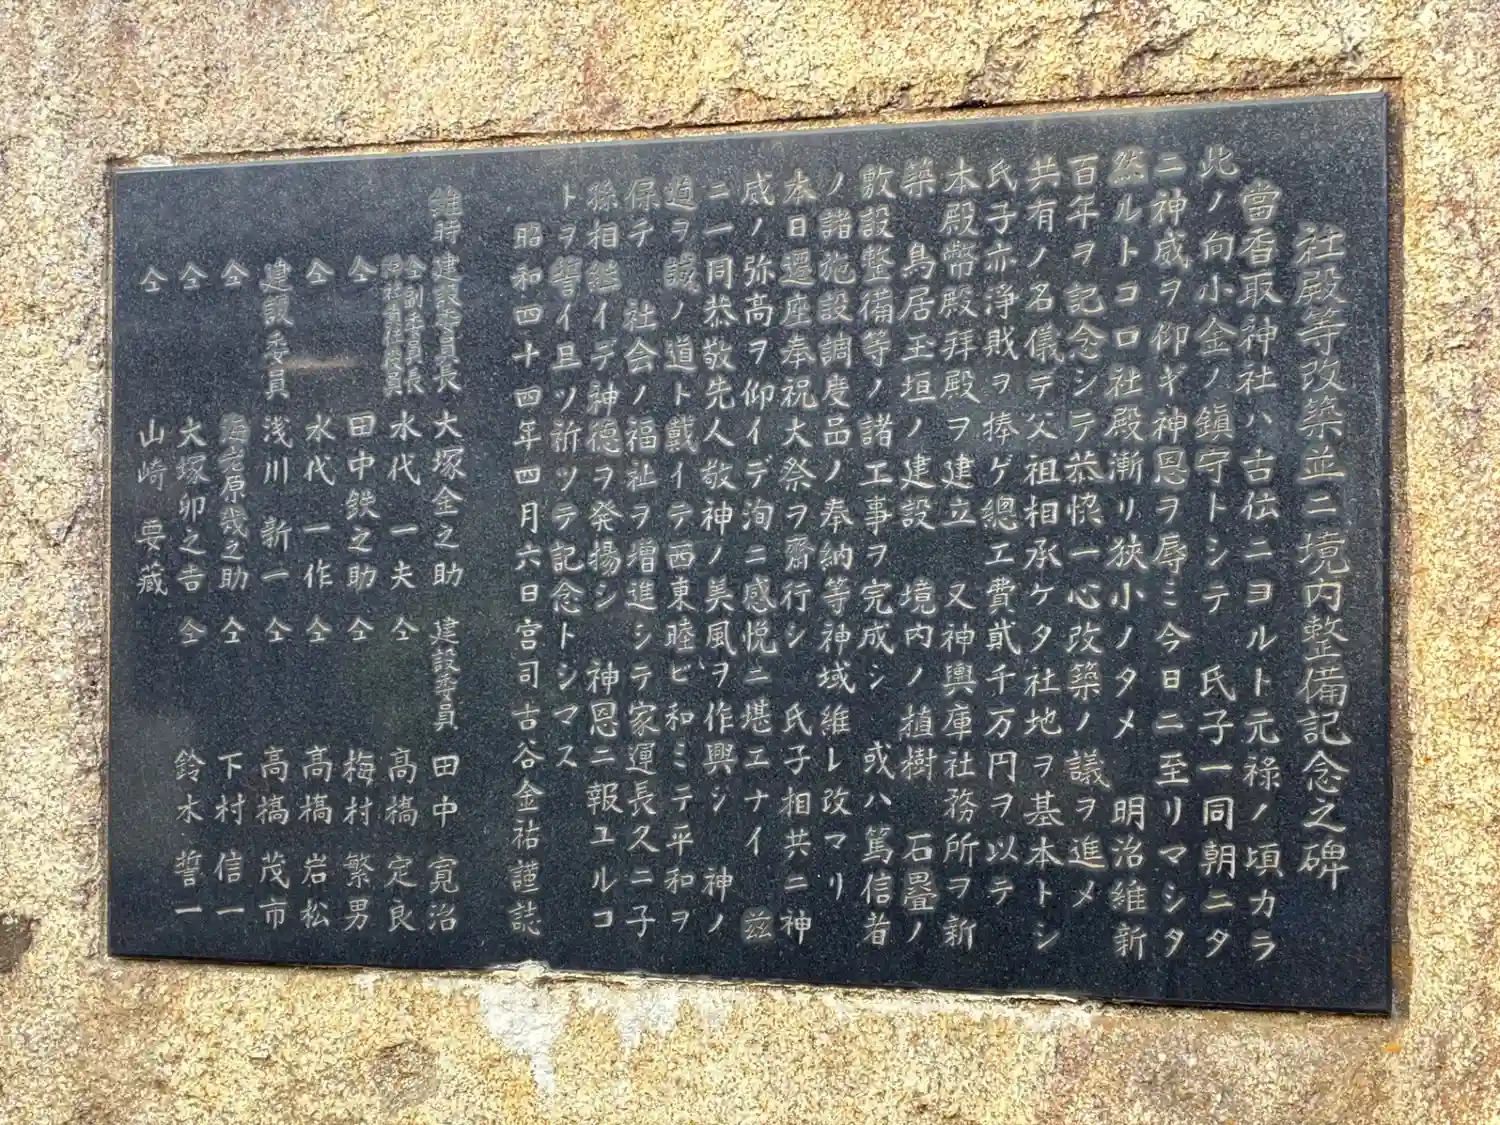 社殿等改築並ニ境内整備記念之碑
當香取神社ハ古伝ニヨルト元禄ノ頃カラ
此ノ向小金ノ鎮守トシテ 氏子一同朝ニタ
ニ神威ヲ仰ギ神恩ヲ辱ミ今日ニ至リマシタ
然ルトコロ社殿漸リ狭小ノタメ 明治維新
百年ヲ記念シテ恭惚一心改築ノ議ヲ進メ
共有ノ名儀デ父祖相承ケタ社地ヲ基本トシ
氏子亦浄賎ヲ捧ゲ總工費貳千万円ヲ以テ
本殿幣殿拝殿ヲ建立 又神輿庫社務所ヲ新
築 鳥居玉垣ノ建設 境内ノ植樹 石畳ノ
敷設整備等ノ諸工事ヲ完成シ 或ハ篤信者
ノ諸施設調度品ノ奉納等神域維レ改マリ
本日遷座奉祝大祭ヲ齋行シ 氏子相共ニ神
威ノ弥高ヲ仰イデ洵ニ感悦ニ堪エナイ 茲
ニ一同恭敬先人敬神ノ美風ヲ作興シ 神ノ
道ヲ誠ノ道ト戴イテ西東睦ビ和ミテ平和ヲ
保チ 社会ノ福祉ヲ増進シテ家運長久ニ子
孫相継イデ神徳ヲ発揚シ 神恩ニ報ユルコ
トヲ誓イ旦ツ祈ツテ記念トシマス
昭和四十四年四月六日宮司古谷金祐謹誌
維時 建設委員長 大塚金之助 建設委員 田中寛治
仝副委員長 水代一夫 仝 高橋定良
仝 田中鉄之助 仝 梅村繁男
仝 水代一作 仝 高橋岩松
建設委員 浅川新一 仝 高橋茂市
仝 原幾之助 仝 下村信一
仝 大塚卯之吉 仝 鈴木誓一
仝 山崎要藏